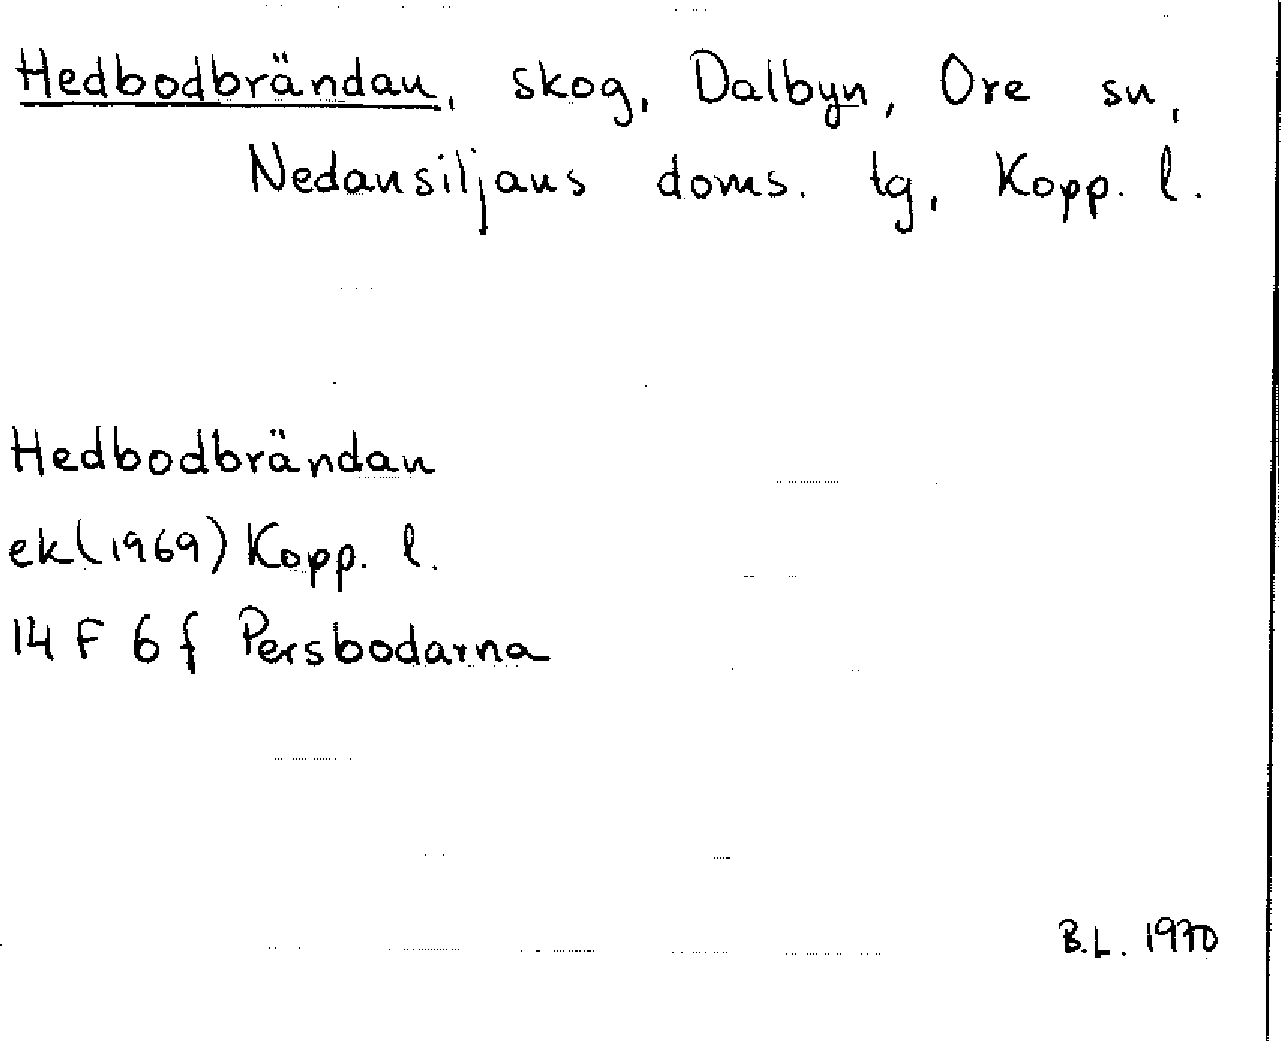 Hedbodbrändan, skog, Dalbyn, Ore sn,
Nedansiljans doms. tg, Kopp. l.
Hedbodbrändan
ek (1969) Kopp. l.
14 F 6 f Persbodarna
B.L. 1970